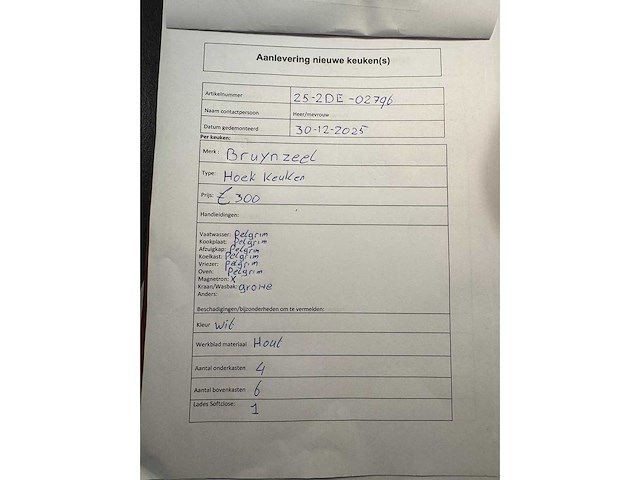 Aanlevering nieuwe keuken(s)
Artikelnummer 25-2DE-02796
Naam contactpersoon Heer/mevrouw
Datum gedemonteerd 30-12-2025
Per keuken:
Merk: Bruynzeel
Type: Hoek Keuken
Prijs: € 300
Handleidingen:
Vaatwasser: Pelgrim
Kookplaat: Pelgrim
Afzuigkap: Pelgrim
Koelkast: Pelgrim
Vriezer: Pelgrim
Oven: Pelgrim
Magnetron: X
Kraan/Wasbak: GROHE
Anders:
Beschadigingen/bijzonderheden om te vermelden:
Kleur Wit
Werkblad materiaal Hout
Aantal onderkasten 4
Aantal bovenkasten 6
Lades Softclose: 1